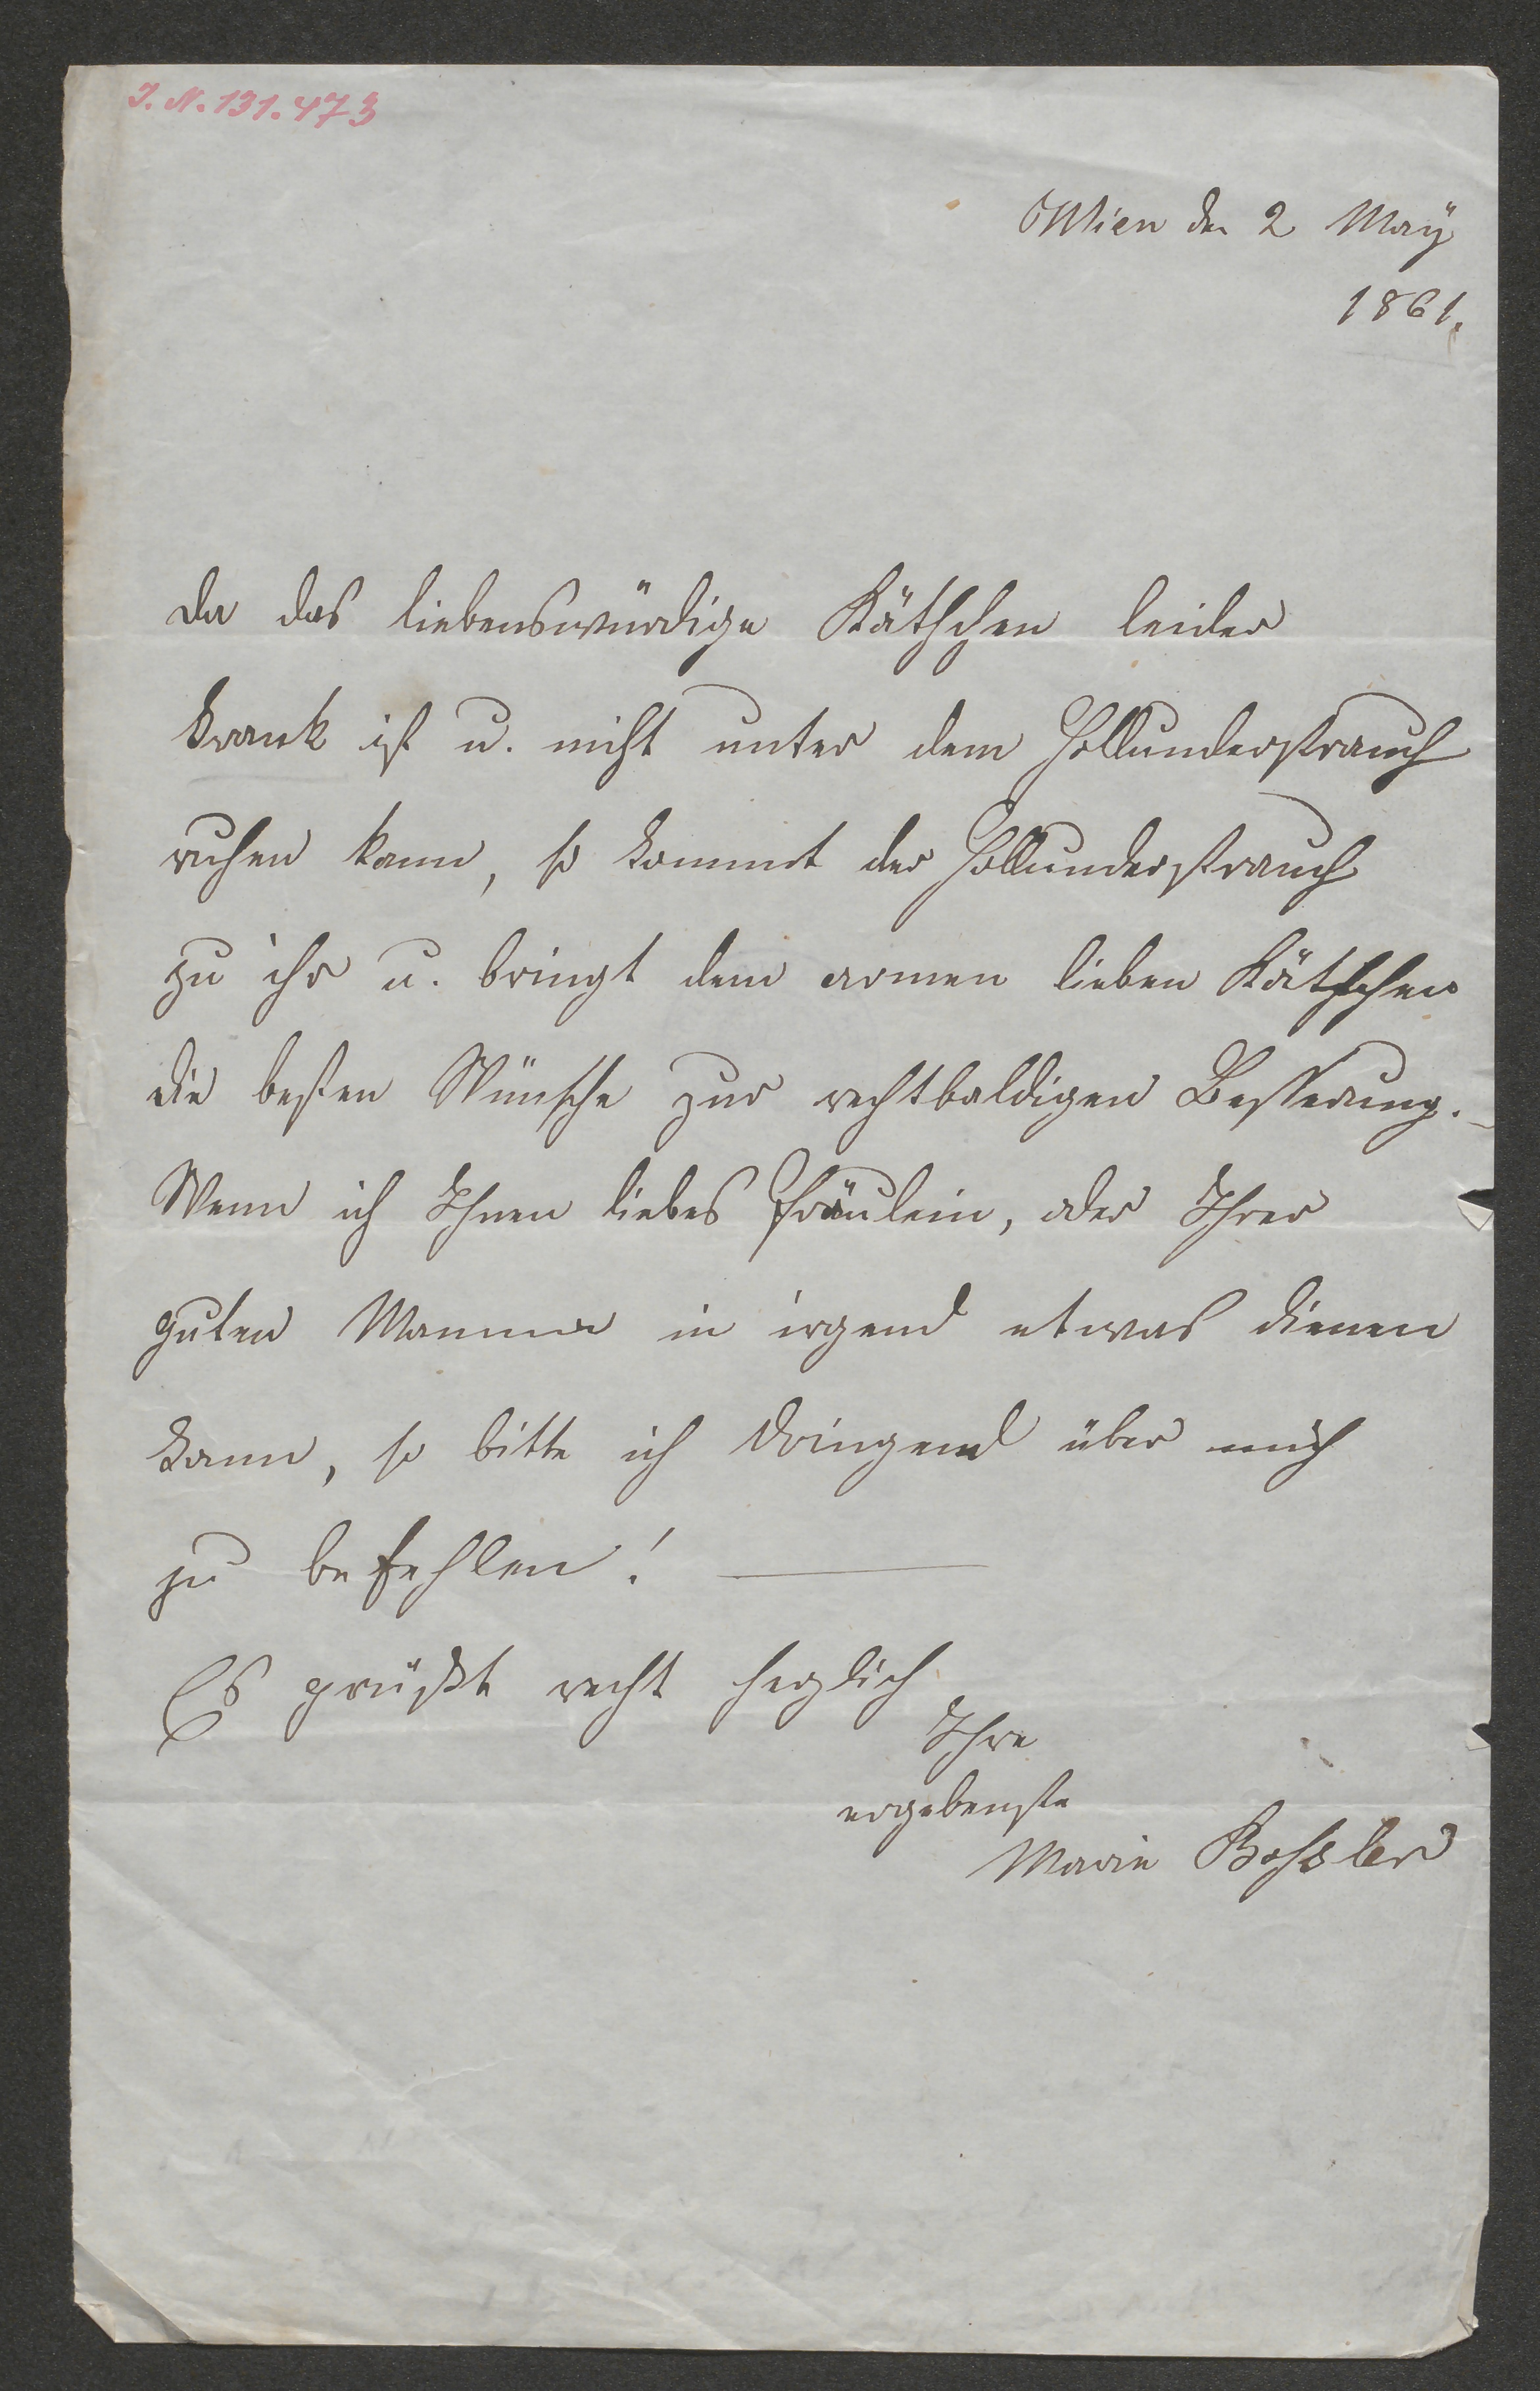 I. N. 131.473
Wien den 2 May
1861.
Da das liebenswürdige Käthchen leider
krank ist u. nicht unter dem Hollunderstrauch
ruhen kann, so kommt der Hollunderstrauch
zu ihr u. bringt dem armen lieben Käthchen
die besten Wünsche zur rechtbaldigen Besserung. _
Wenn ich Ihnen liebes Fräulein, oder Ihrer
guten Mamma in irgend etwas dienen
kann, so bitte ich dringend über mich
zu befehlen! —
Es grüßt recht herzlich
Ihre
ergebenste
Marie